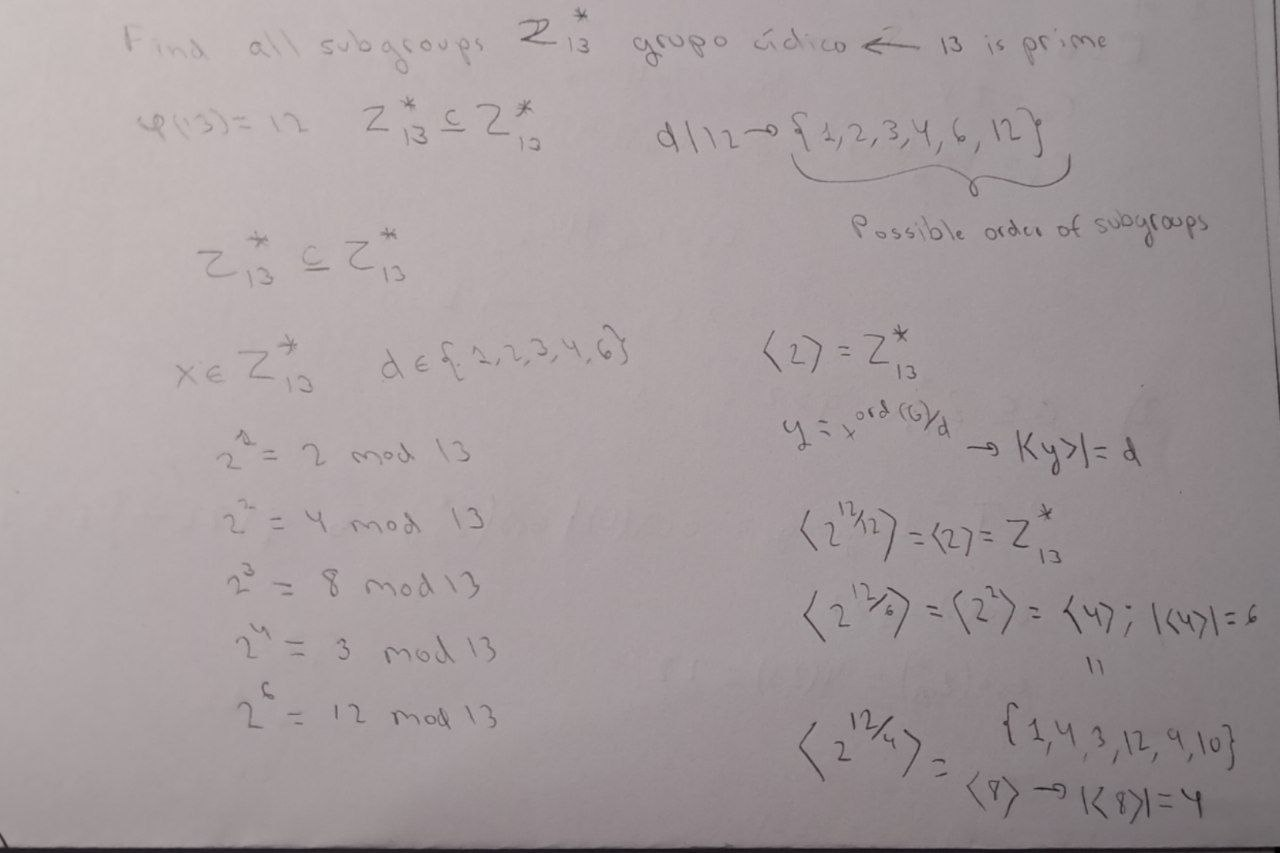 Find all subgroups Z*₁₃ grupo cíclico ← 13 is prime
φ(13) = 12 Z*₁₃ ⊆ Z*₁₃ d|12 → {1,2,3,4,6,12}
Possible order of subgroups
Z*₁₃ ⊆ Z*₁₃
x ∈ Z*₁₃ d ∈ {1,2,3,4,6}
2¹ = 2 mod 13
2² = 4 mod 13
2³ = 8 mod 13
2⁴ = 3 mod 13
2⁶ = 12 mod 13
⟨2⟩ = Z*₁₃
y = x^ord(G)/d → |⟨y⟩| = d
⟨2^12/12⟩ = ⟨2⟩ = Z*₁₃
⟨2^12/6⟩ = ⟨2²⟩ = ⟨4⟩; |⟨4⟩| = 6
=
{1,4,3,12,9,10}
⟨2^12/4⟩ = ⟨8⟩ → |⟨8⟩| = 4